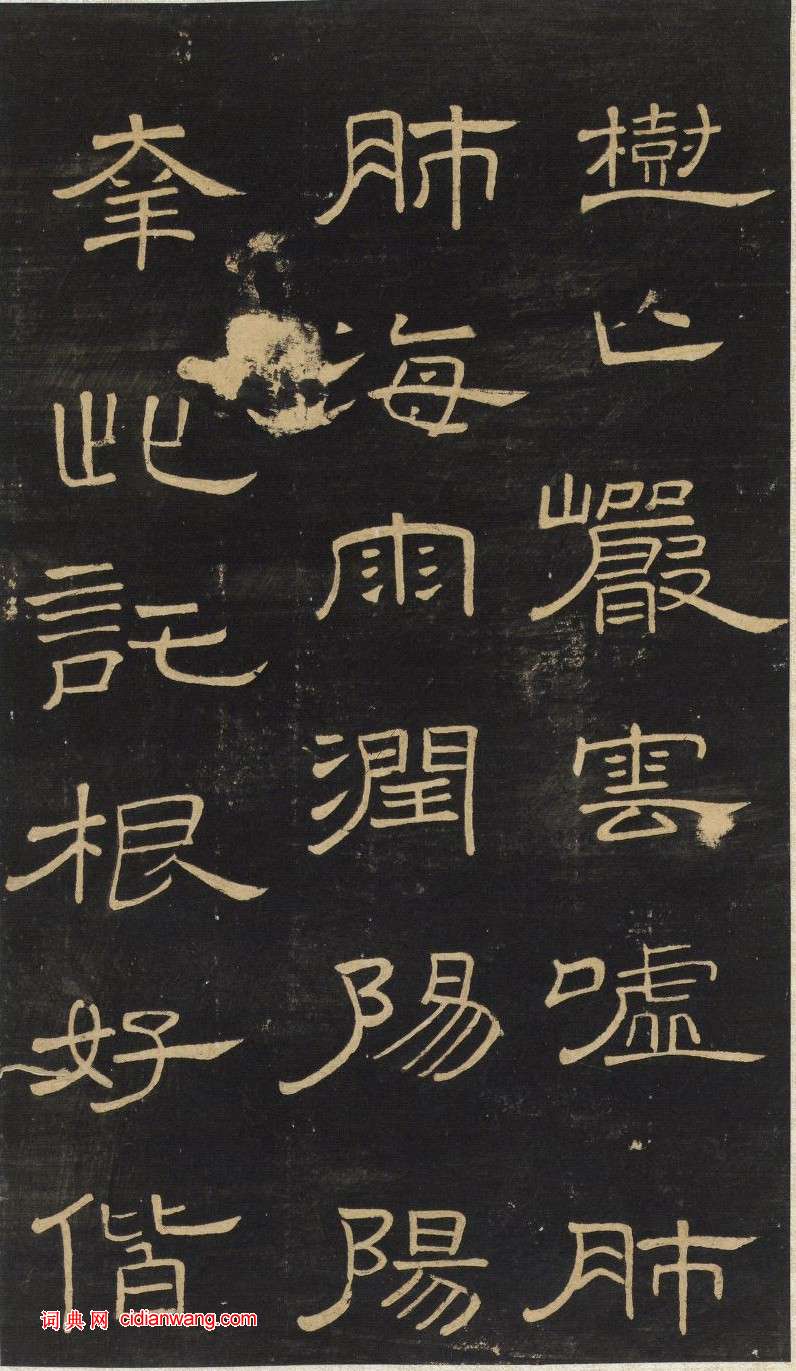 樹亡巖雲嘘肺
肺海雨潤陽陽
幸此託根好偕
词典网 cidianwang.com